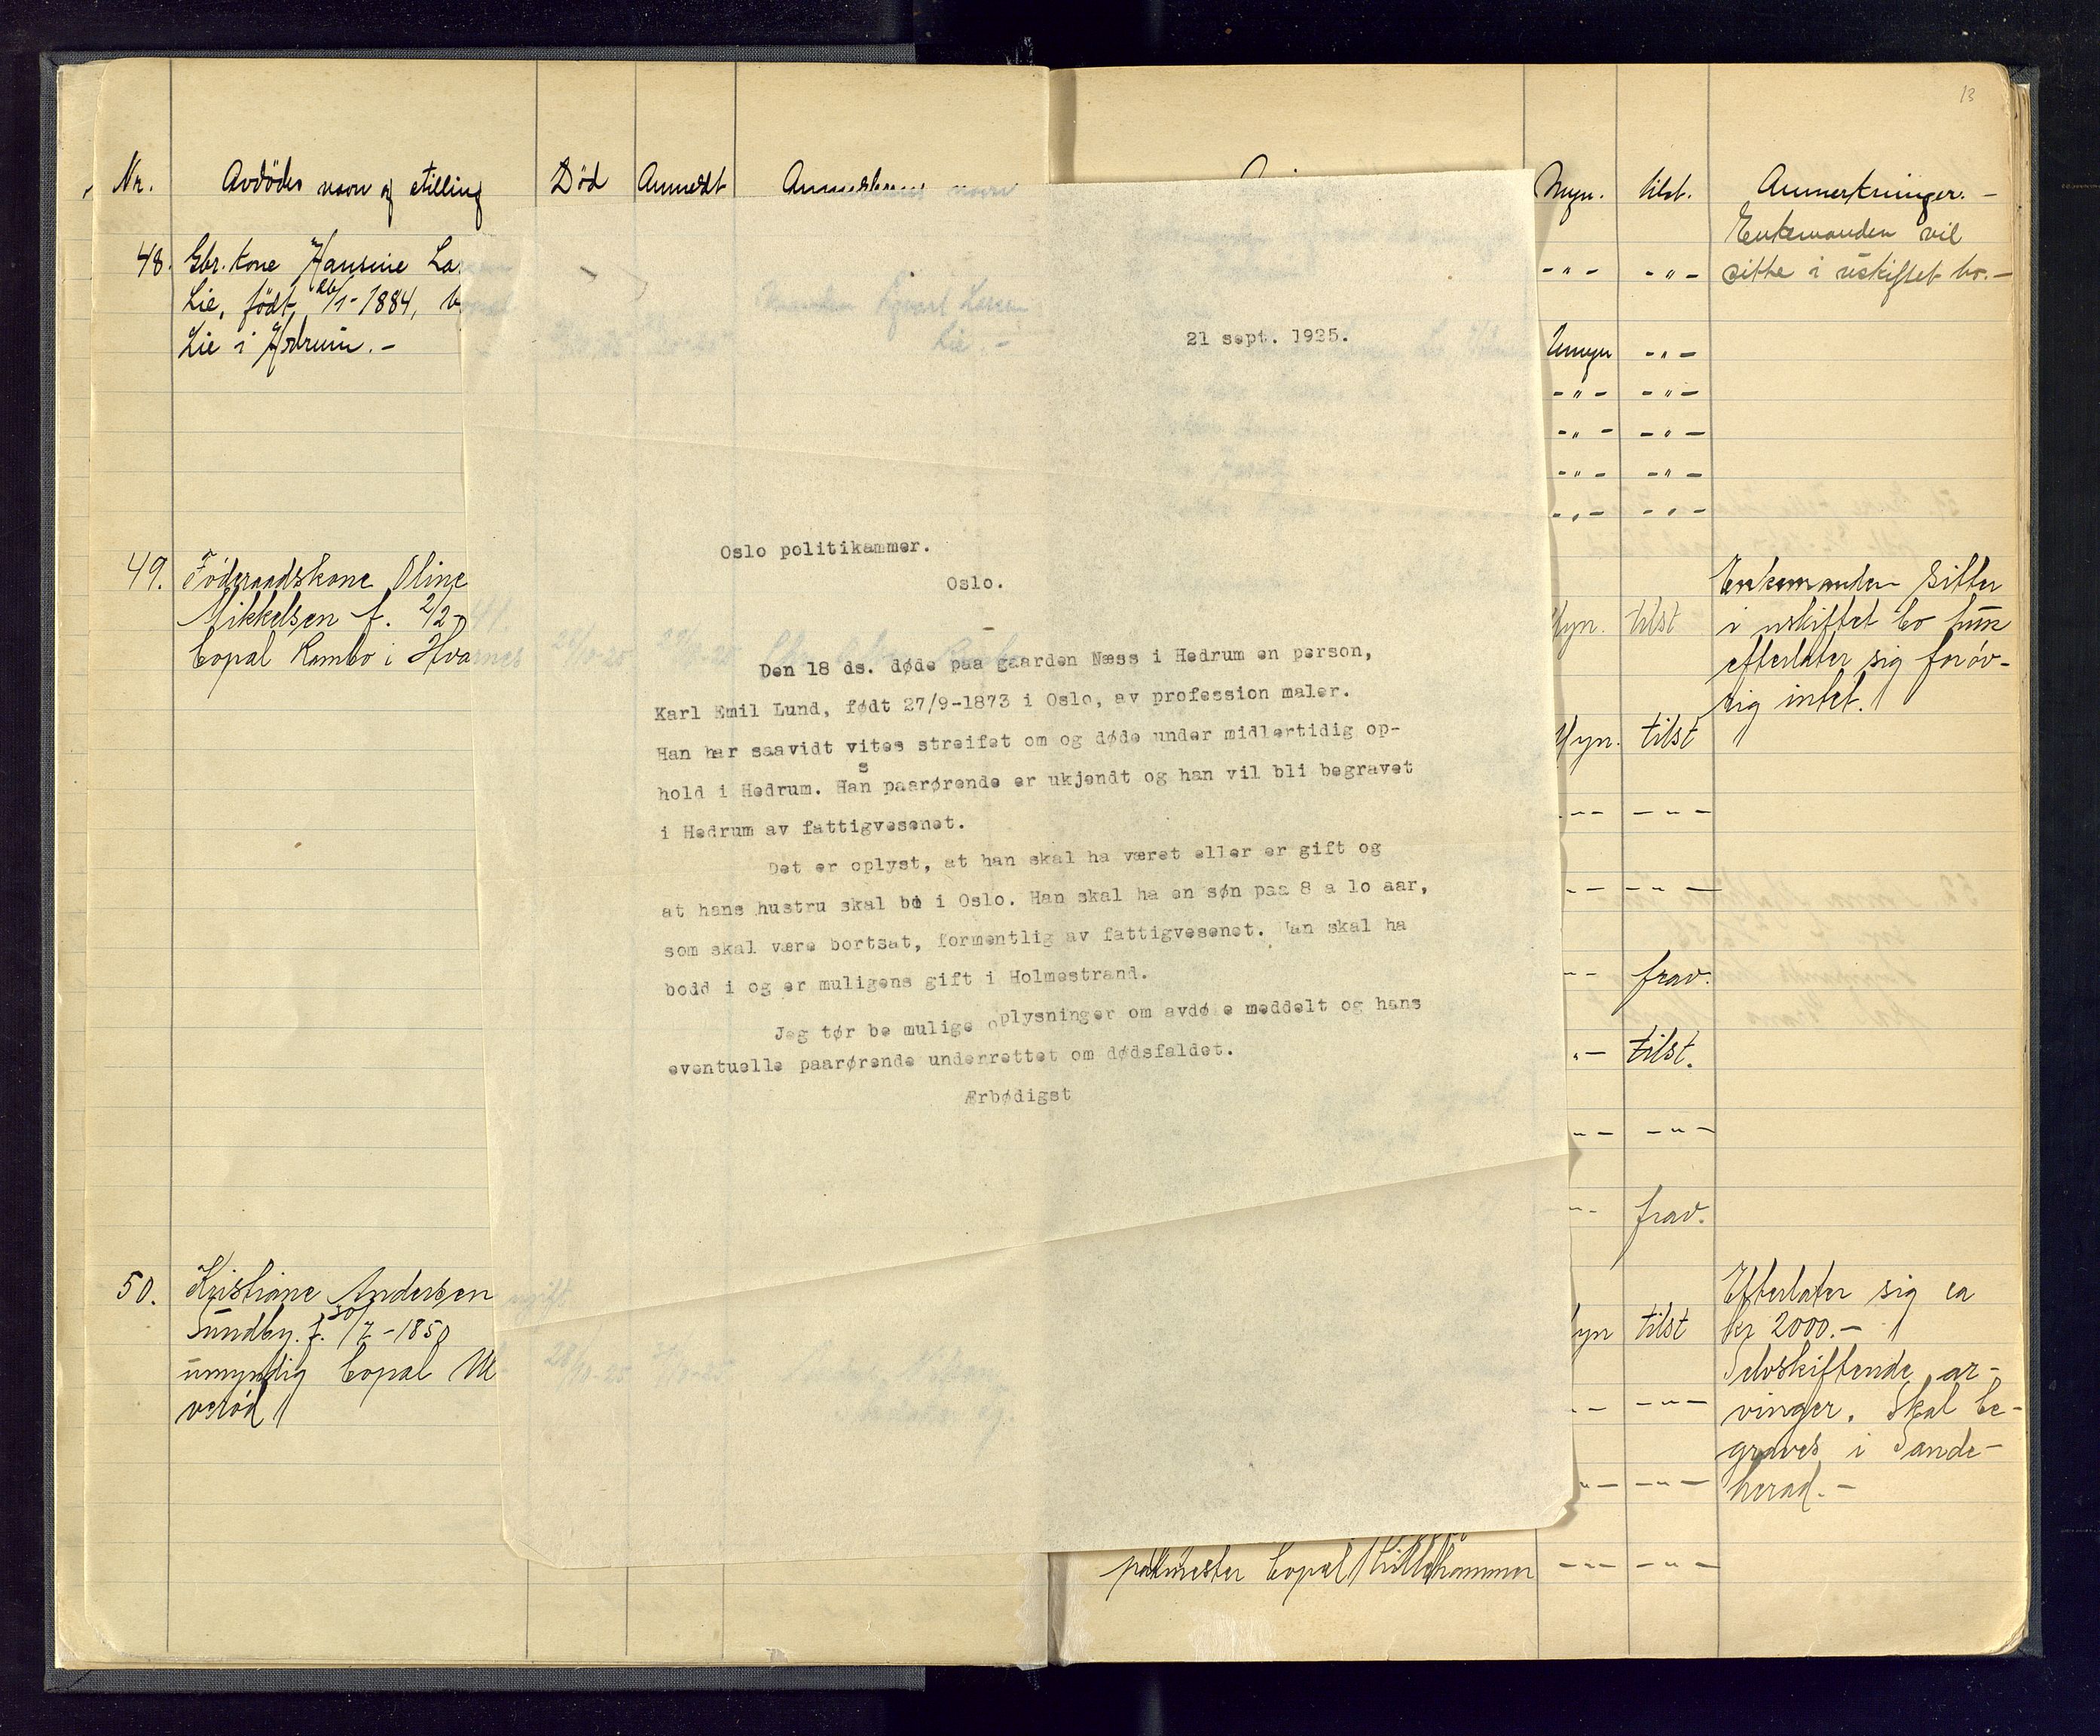 13
Nr.
Avdödes navn og stilling
Död
Anmeldt
Anmelderens navn
Myn.
tilst.
Anmerkninger. -
48. Gbr. kone Hansine La
Lie, født 26/1-1884, b
Lie i Hedrum. -
49. Föderaadskone Oline
Mikkelsen f. 2/2-
bopal Rambo i Hvarnes
50. Kristiane Andersen
Sundby. f. 30/7-1850
umyndig bopal
21 sept. 1925.
Oslo politikammer.
Oslo.
Den 18 ds. døde paa gaarden Næss i Hedrum en person,
Karl Emil Lund, født 27/9-1873 i Oslo, av profession maler.
Han har saavidt vites streifet om og døde under midlertidig op-
hold i Hedrum. Hans paarørende er ukjendt og han vil bli begravet
i Hedrum av fattigvesenet.
Det er oplyst, at han skal ha været eller er gift og
at hans hustru skal bo i Oslo. Han skal ha en søn paa 8 a lo aar,
som skal være bortsat, formentlig av fattigvesenet. Han skal ha
bodd i og er muligens gift i Holmestrand.
Jeg tør be mulige oplysninger om avdøde meddelt og hans
eventuelle paarørende underrettet om dødsfaldet.
Ærbødigst
bopal Lillehammer
Enkemanden vil
-"- -"- sitte i uskiftet bo. -
Umyn -"-
-"- -"-
-"- -"-
-"- -"-
-"- -"-
Enkemanden sitter
Myn. tilst i uskiftet bo hun
efterlater sig forøv-
rig intet.
Myn. tilst
-"- -"-
-"- -"-
-"- frav.
-"- tilst.
-"- -"-
-"- frav.
Efterlater sig ca
Myn tilst kr 2000.-
Selvskiftende ar-
-"- -"- vinger. Skal be-
graves i Sande-
-"- -"- herad. -
-"- -"-